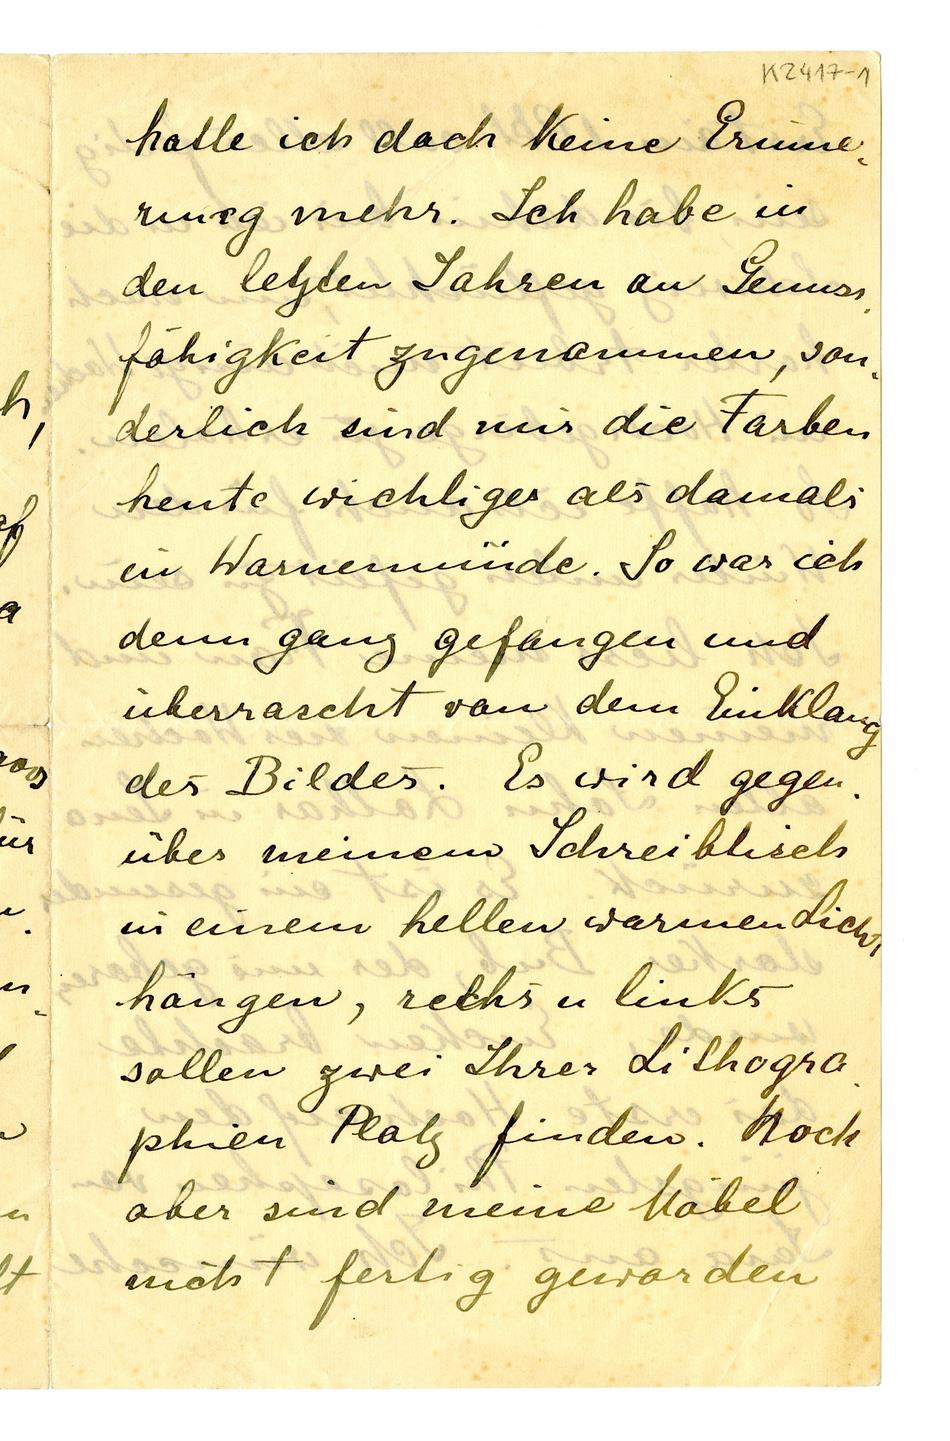 K2417-1
hatte ich doch keine Erinne-
rung mehr. Ich habe in
den letzten Jahren an Genuss-
fähigkeit zugenommen, son-
derlich sind mir die Farben
heute wichtiger als damals
in Warnemünde. So war ich
denn ganz gefangen und
überrascht von dem Einklang
des Bildes. Es wird gegen-
über meinem Schreibtisch
in einem hellen warmen Licht,
hängen, rechs u links
sollen zwei Ihrer Lithogra-
phien Platz finden. Noch
aber sind meine Möbel
nicht fertig geworden